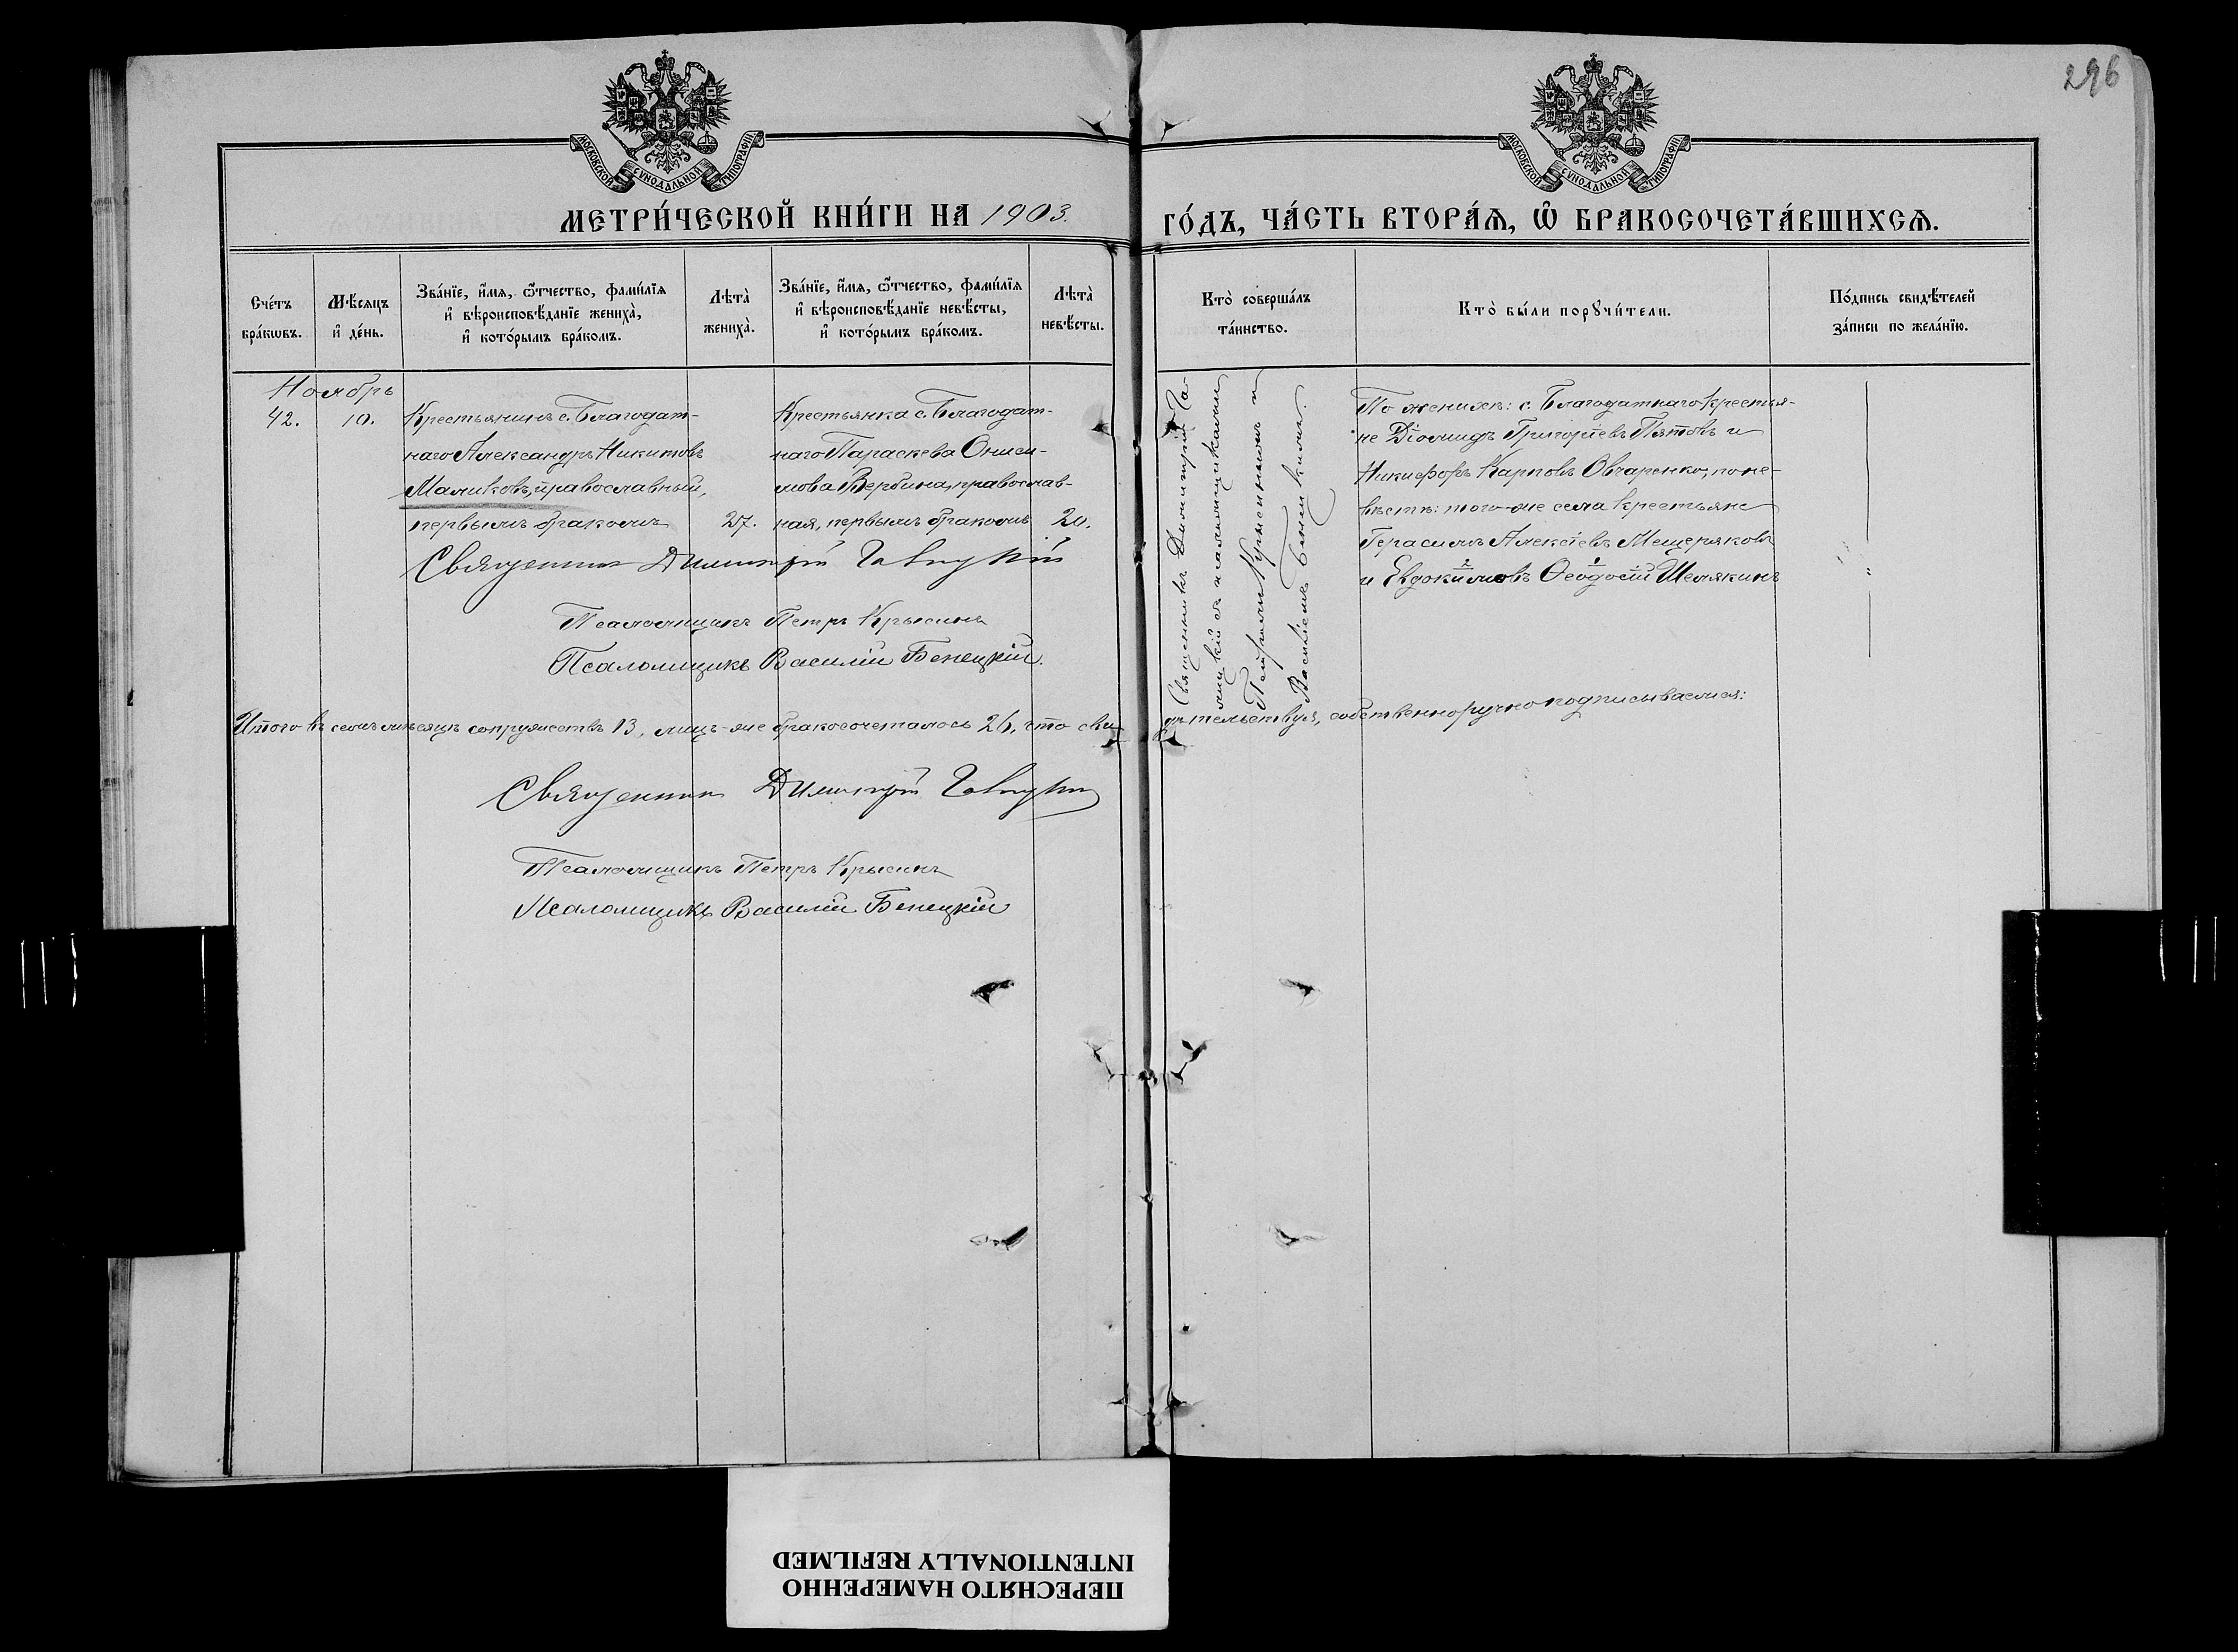 296
МОСКОВСКОЙ СУНОДАЛЬНОЙ ТИПОГРАФІИ
МОСКОВСКОЙ СУНОДАЛЬНОЙ ТИПОГРАФІИ
МЕТРИ́ЧЕСКОЙ КНИ́ГИ НА 1903.
ГО́ДЪ, ЧА́СТЬ ВТОРА́Ѧ, Ѡ҆ БРАКОСОЧЕТА́ВШИХСѦ.
Сче́тъ
бра́кѡвъ.
Мѣ́сѧцъ
и҆ де́нь.
Зва́нїе, и҆́мѧ, ѻ҆́тчество, фами́лїѧ
и҆ вѣроисповѣ́данїе жениха̀,
и҆ кото́рымъ бра́комъ.
Лѣта̀
жениха̀.
Зва́нїе, и҆́мѧ, ѻ҆́тчество, фами́лїѧ
и҆ вѣроисповѣ́данїе невѣ́сты,
и҆ кото́рымъ бра́комъ.
Лѣта̀
невѣ́сты.
Кто̀ соверша́лъ
та́инство.
Кто̀ бы́ли порꙋчи́тели.
По́дпись свидѣ́телей
за́писи по жела́нїю.
Ноябрь
42.
10.
Крестьянинъ с. Благодат-
наго Александръ Никитовъ
Маликовъ, православный,
первымъ бракомъ
27.
Крестьянка с. Благодат-
наго Параскева Ониси-
мова Вербина, православ-
ная, первымъ бракомъ
20.
Священникъ Димитрій Га-
вицкій съ псаломщиками
Петромъ Крысинымъ и
Василіемъ Бенецкимъ.
По женихѣ: с. Благодатнаго крестья-
не Діомидъ Григоріевъ Пятовъ и
Никифоръ Карповъ Овчаренко, по не-
вѣстѣ: того-же села крестьяне
Герасимъ Алексіевъ Мещеряковъ
и Евдокимовъ Ѳеодосій Шемякинъ
"
Священникъ Димитрій Гавицкій
Псаломщикъ Петръ Крысинъ
Псаломщикъ Василій Бенецкій.
Итого въ семъ мѣсяцѣ супружествъ 13, лицъ-же бракосочеталось 26, что сви-
дѣтельствуя, собственноручно подписываемся:
Священникъ Димитрій Гавицкій
Псаломщикъ Петръ Крысинъ
Псаломщикъ Василій Бенецкій
ПЕРЕСНЯТО НАМЕРЕННО
INTENTIONALLY REFILMED